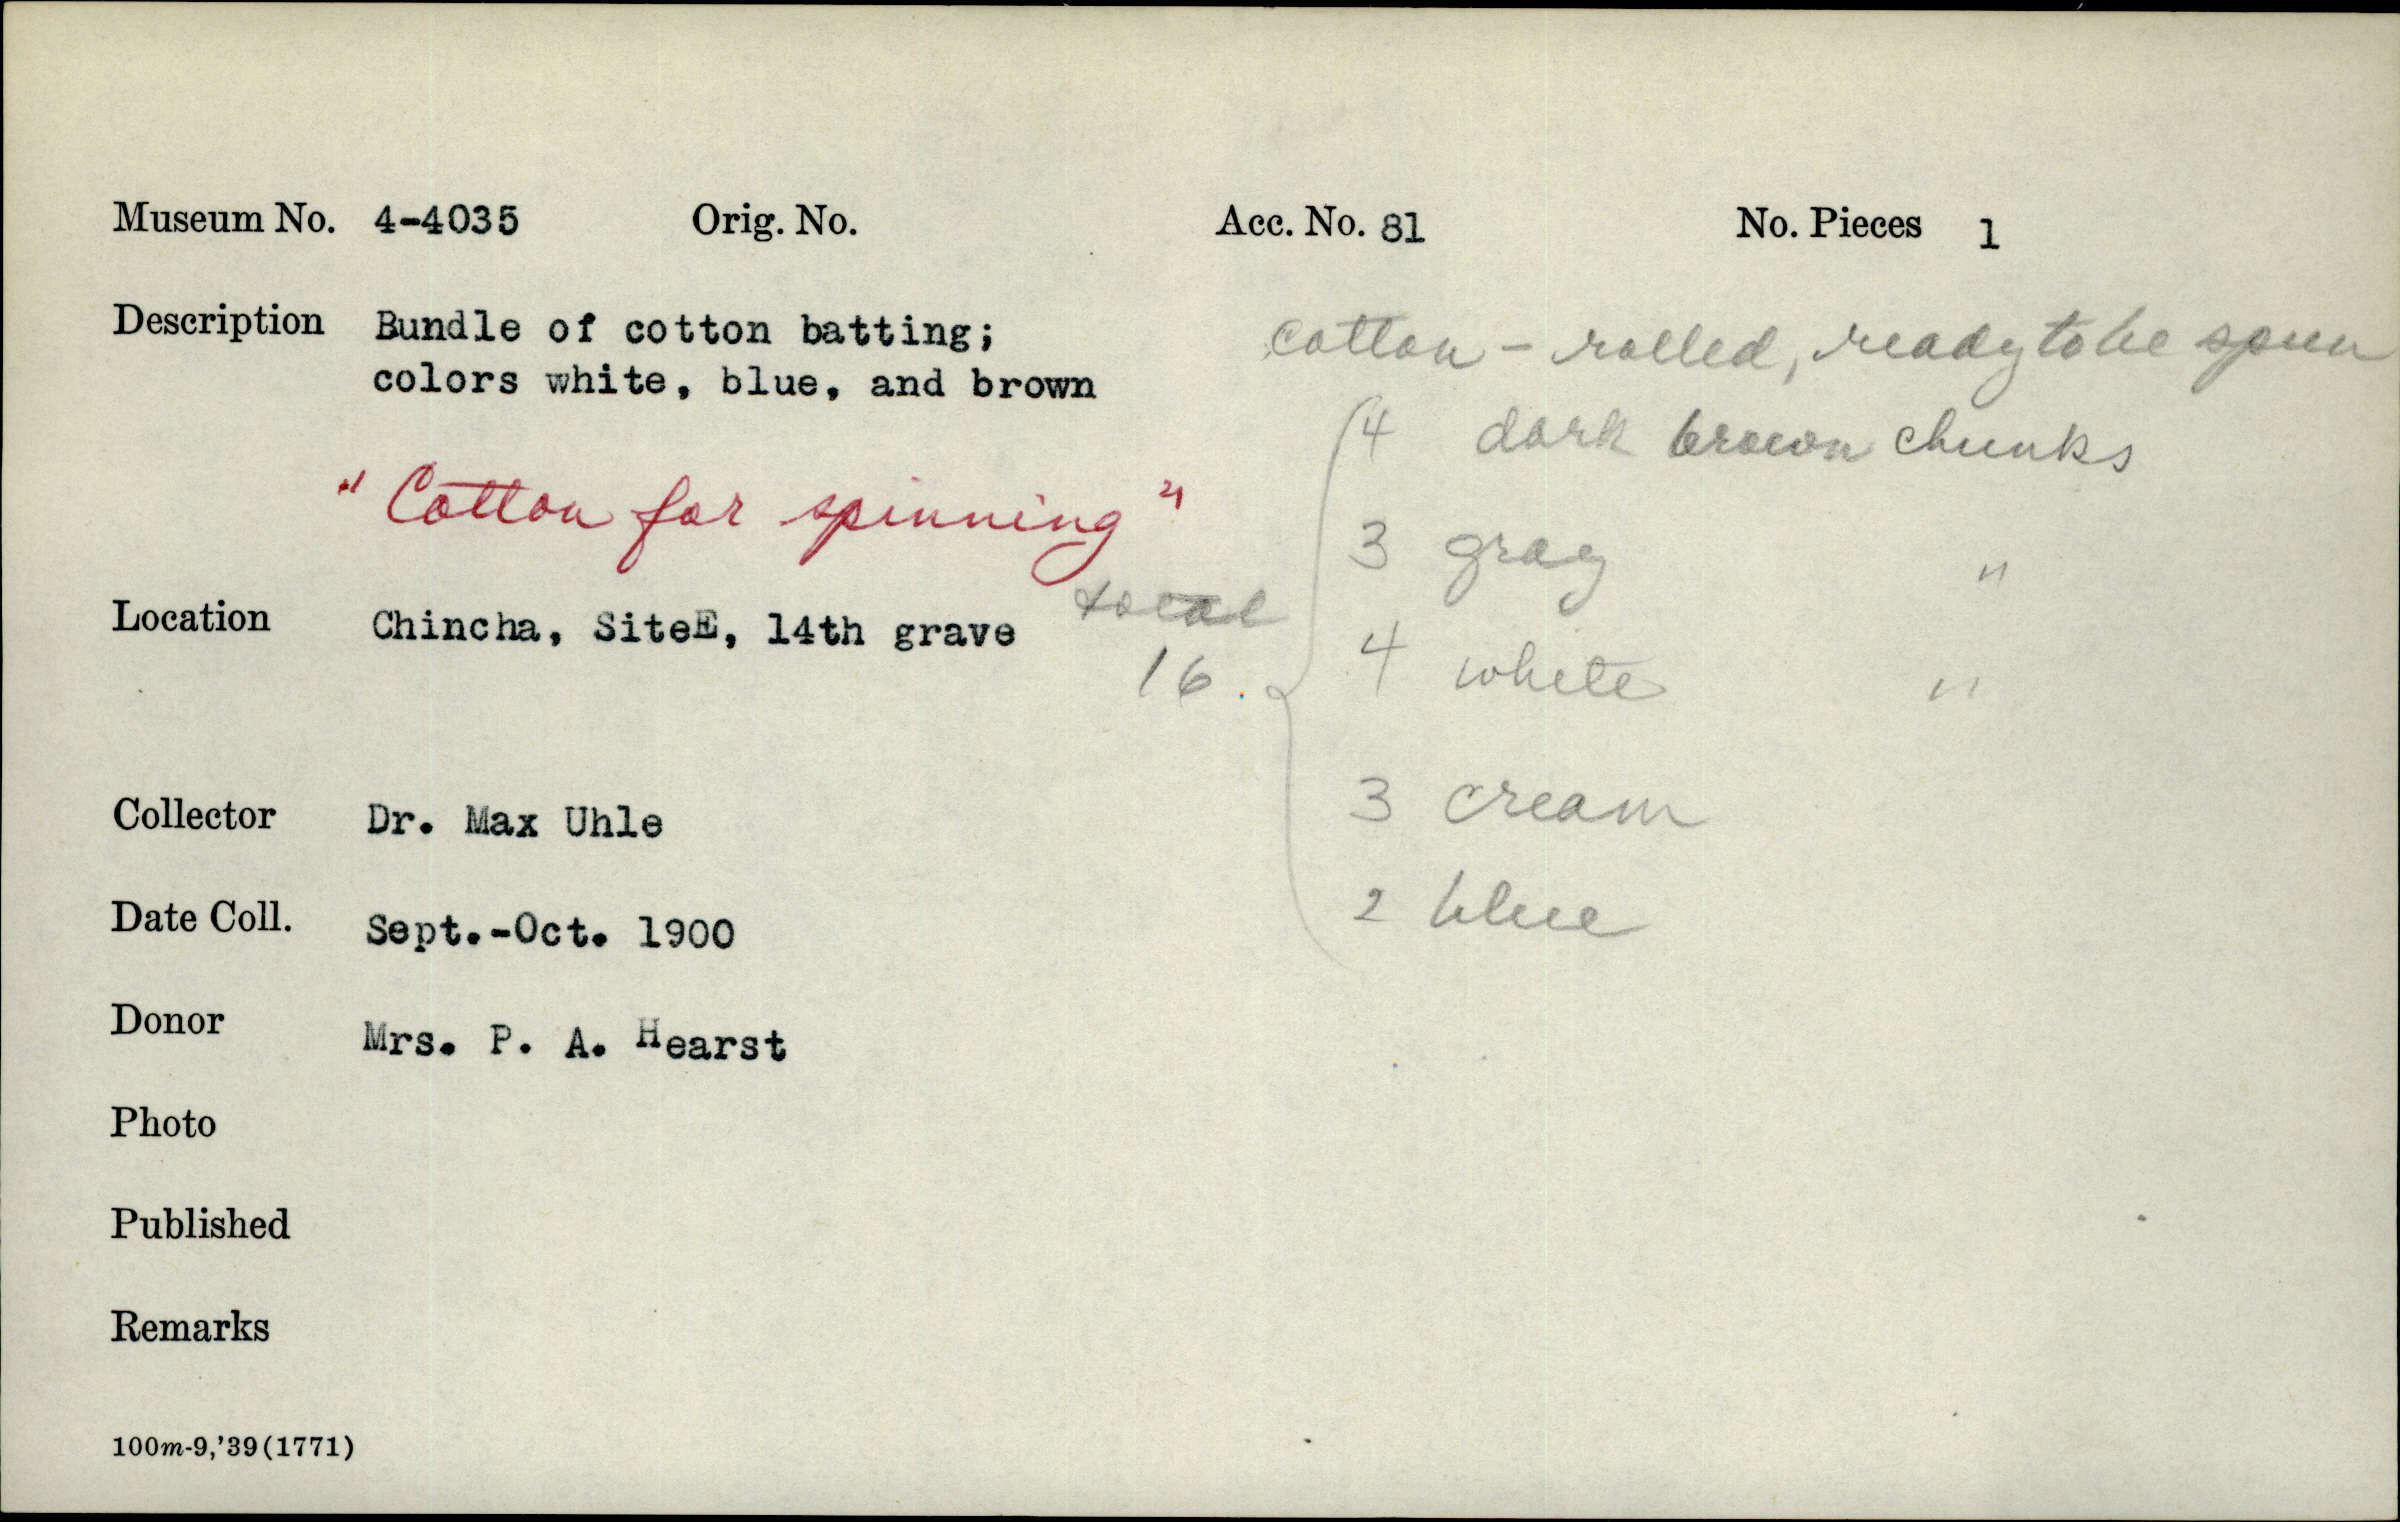 Museum No. 4-4035 Orig. No. Acc. No. 81 No. Pieces 1
Description Bundle of cotton batting;
colors white, blue, and brown
"Cotton for spinning"
Location Chincha, SiteE, 14th grave
Collector Dr. Max Uhle
Date Coll. Sept.-Oct. 1900
Donor Mrs. P. A. Hearst
Photo
Published
Remarks
100m-9,'39(1771)
cotton - rolled, ready to be spun
total
16.
4 dark brown chunks
3 gray "
4 white "
3 cream
2 blue